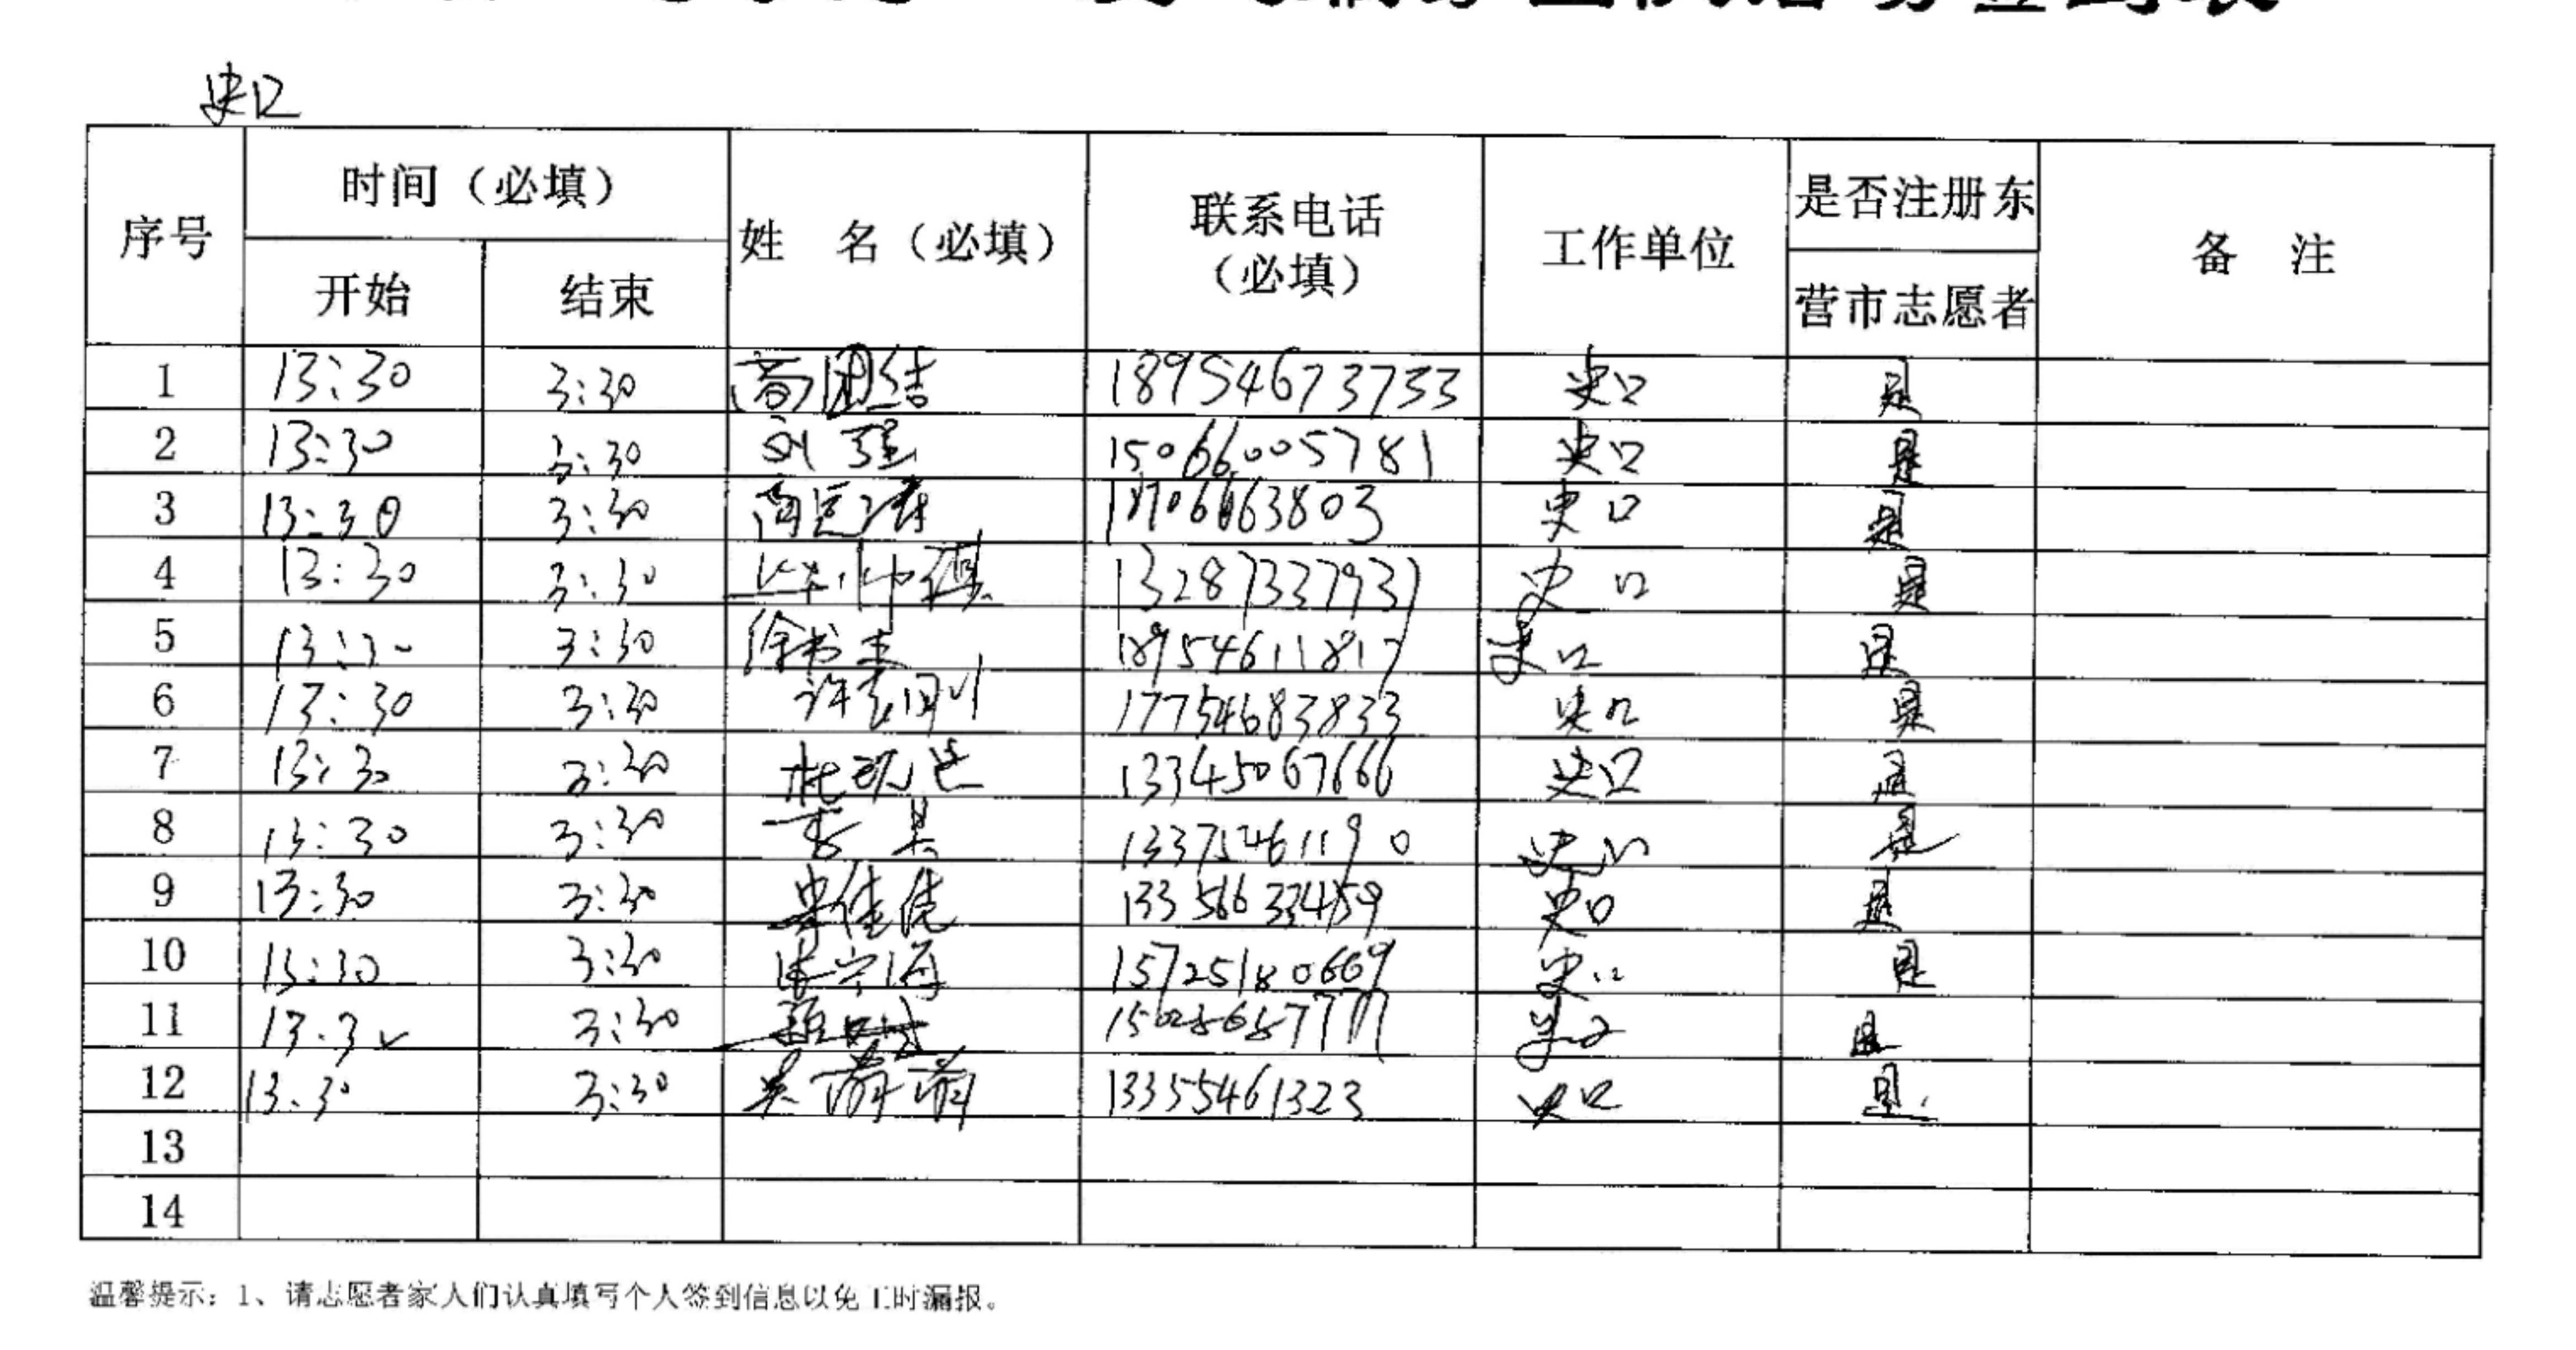 史口
序号 时间（必填） 姓 名（必填） 联系电话（必填） 工作单位 是否注册东营市志愿者 备 注
开始 结束
1 13:30 3:30 高团结 18954673733 史口 是
2 13:30 3:30 刘强 15066005781 史口 是
3 13:30 3:30 史口 是
4 13:30 3:30 史口 是
5 13:30 3:30 徐书圭 18954611817 史口 是
6 13:30 3:30 17754683833 史口 是
7 13:30 3:30 13345067666 史口 是
8 13:30 3:30 李 13375461190 史口 是
9 13:30 3:30 13356633459 史口 是
10 13:30 3:30 15725180669 史口 是
11 13:30 3:30 史口 是
12 13:30 3:30 13355461323 史口 是
13
14
温馨提示：1、请志愿者家人们认真填写个人签到信息以免工时漏报。